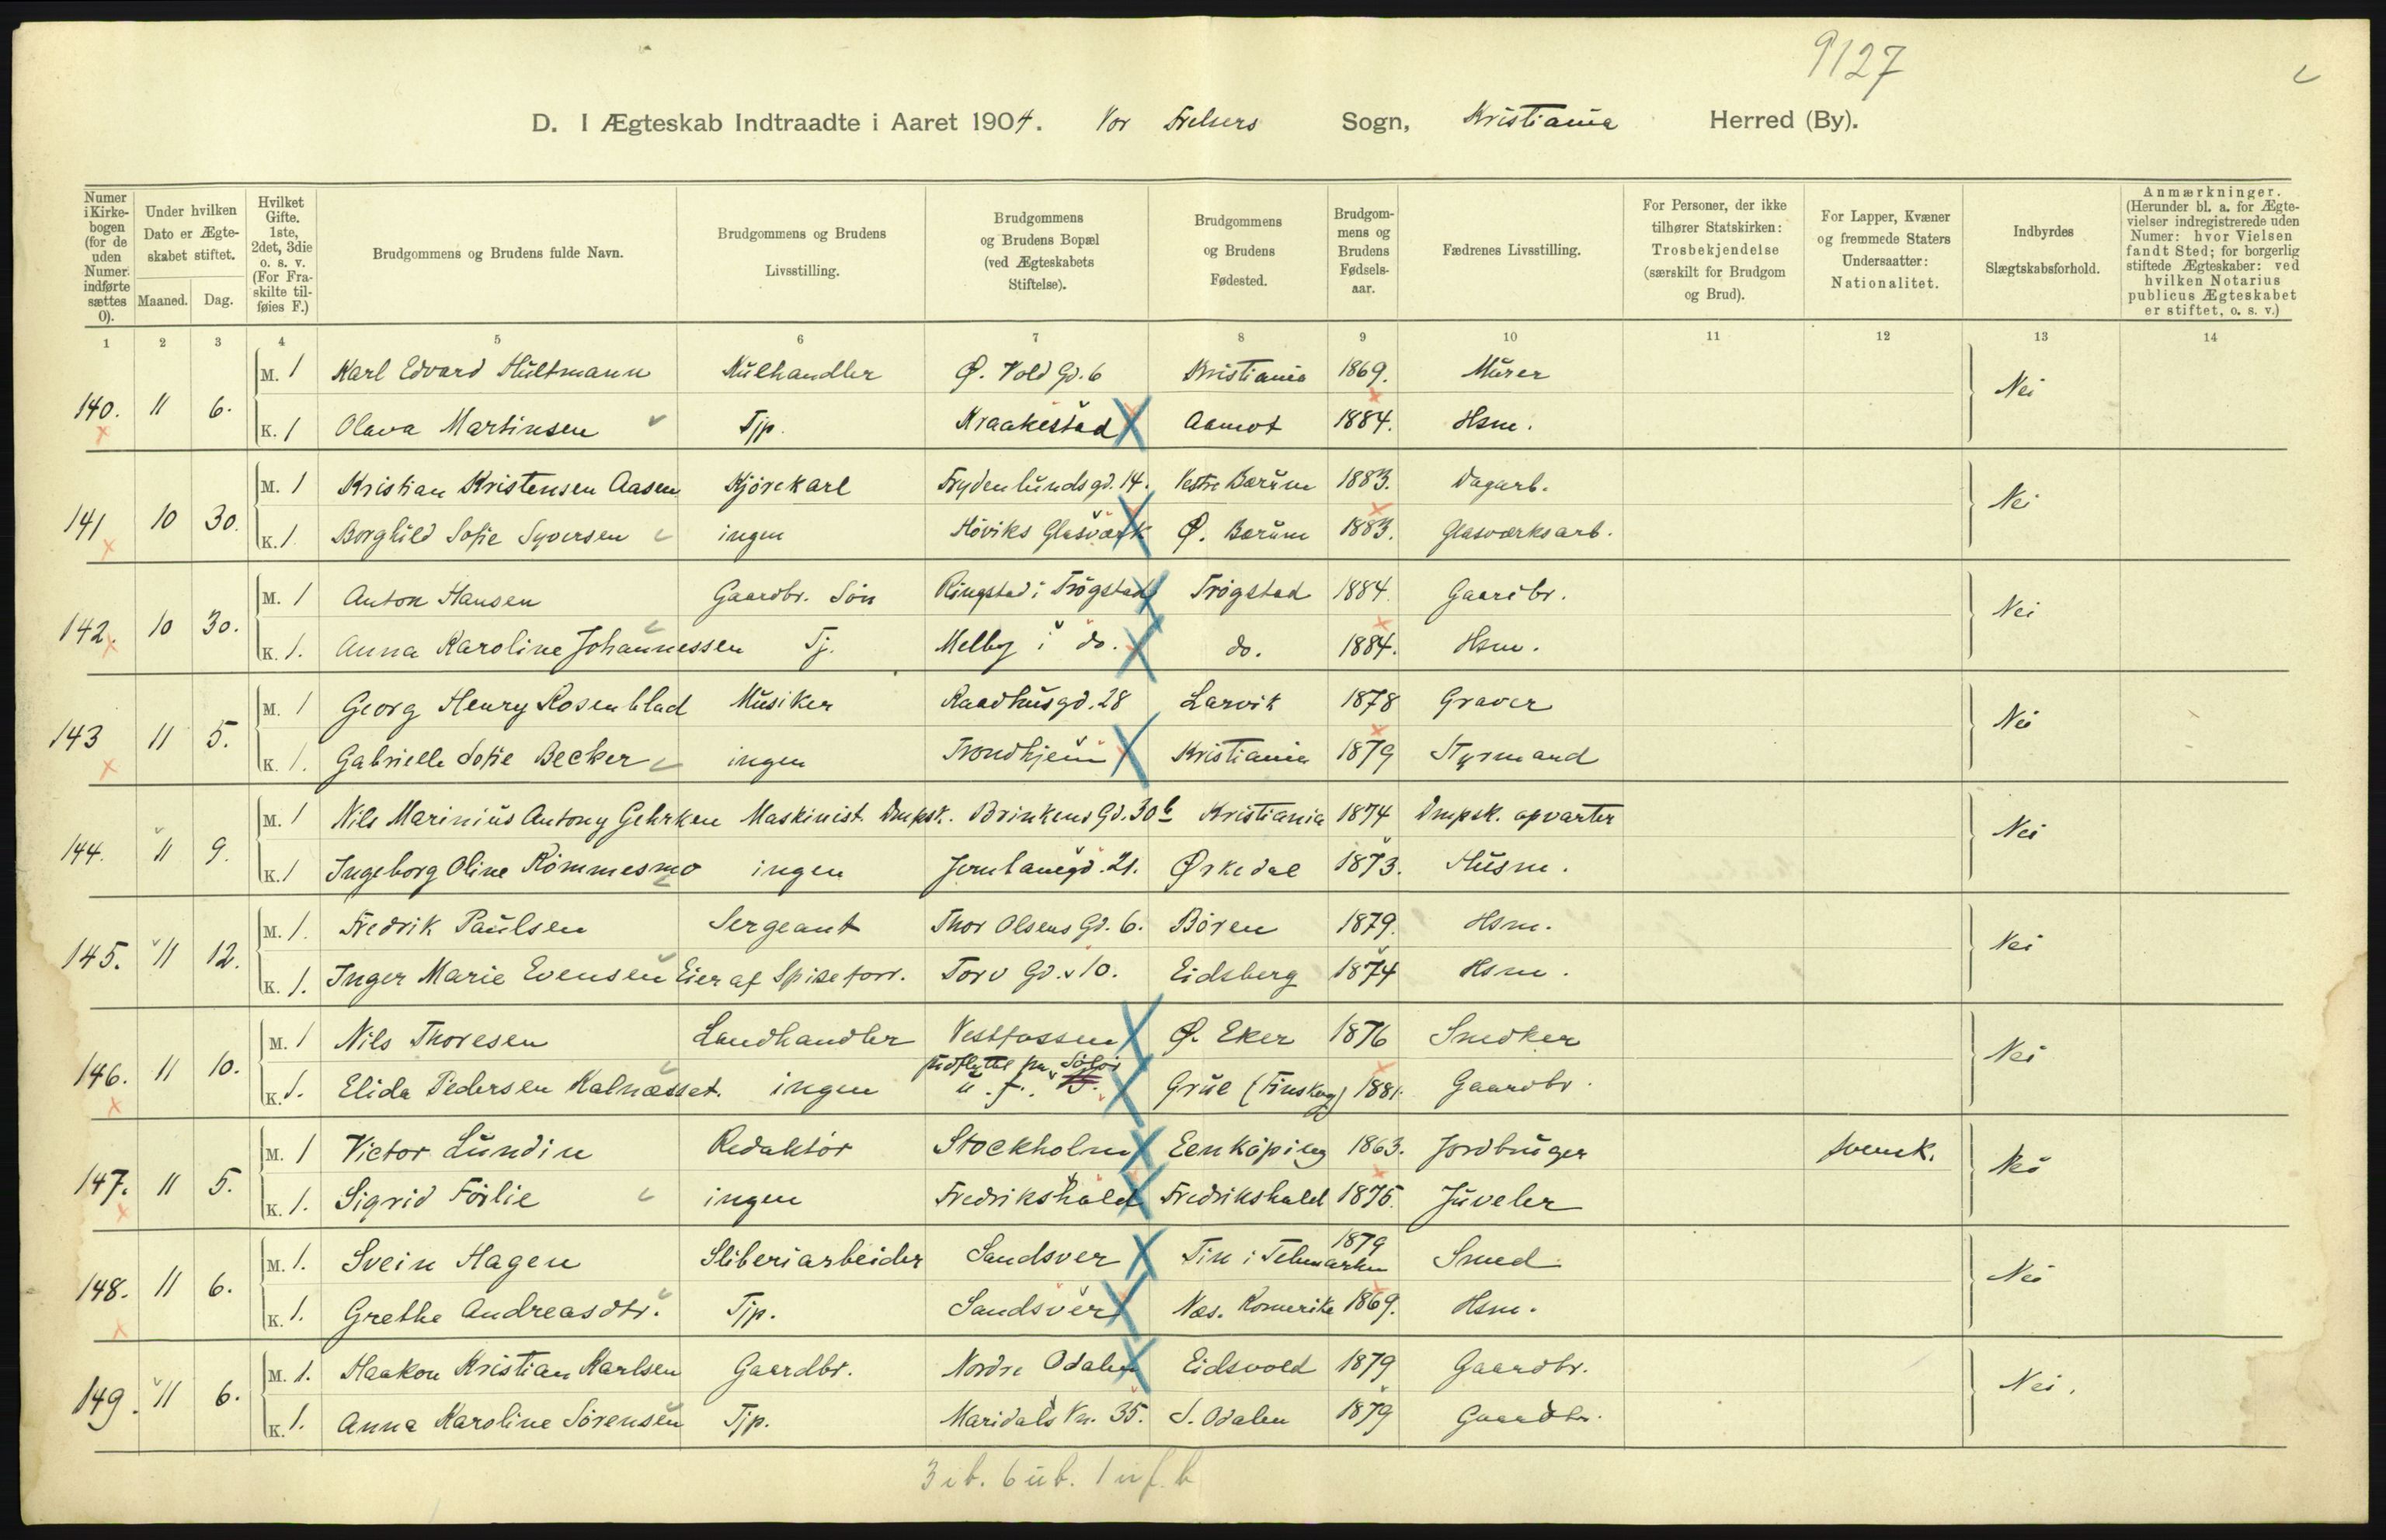 9127
D. I Ægteskab Indtraadte i Aaret 1904. Vor Frelsers Sogn, Kristiania Herred (By).
Numer i Kirkebogen (for de uden Numer indførte sættes 0). Under hvilken Dato er Ægteskabet stiftet. Maaned. Dag. Hvilket Gifte. 1ste, 2det, 3die o. s. v. (For Fraskilte tilføies F.) Brudgommens og Brudens fulde Navn. Brudgommens og Brudens Livsstilling. Brudgommens og Brudens Bopæl (ved Ægteskabets Stiftelse). Brudgommens og Brudens Fødested. Brudgommens og Brudens Fødselsaar. Fædrenes Livsstilling. For Personer, der ikke tilhører Statskirken: Trosbekjendelse (særskilt for Brudgom og Brud). For Lapper, Kvæner og fremmede Staters Undersaatter: Nationalitet. Indbyrdes Slægtskabsforhold. Anmærkninger. (Herunder bl. a. for Ægtevielser indregistrerede uden Numer: hvor Vielsen fandt Sted; for borgerlig stiftede Ægteskaber: ved hvilken Notarius publicus Ægteskabet er stiftet, o. s. v.)
1 2 3 4 5 6 7 8 9 10 11 12 13 14
M. 1 Karl Edvard Hultmann Kulhandler Ø. Vold Gd. 6 Kristiania 1869. Murer
140. 11 6. Nei
K. 1 Olava Martinsen Tjp. Kraakestad Aamot 1884. Hsm.
M. 1 Kristian Kristensen Aasen Kjørekarl Frydenlundsgd. 14. Vestre Bærum 1883. Dagarb.
141 10 30. Nei
K. 1. Borghild Sofie Syversen ingen Høviks Glasværk Ø. Bærum 1883. Glasværksarb.
M. 1 Anton Hansen Gaardbr. Søn Ringstad i Trøgstad Trøgstad 1884. Gaardbr.
142. 10 30. Nei
K. 1. Anna Karoline Johannessen Tj. Melby i do. do. 1884. Hsm.
M. 1 Georg Henry Rosenblad Musiker Raadhusgd. 28 Larvik 1878 Graver
143 11 5. Nei
K. 1. Gabrielle Sofie Becker ingen Trondhjem Kristiania 1879 Styrmand
M. 1 Nils Marinius Antony Gehrken Maskinist Dmpsk. Brinkens Gd. 30b Kristiania 1874 Dmpsk. opvarter
144. 11 9. Nei
K. 1 Ingeborg Oline Rømmesmo ingen Jernbanegd. 21. Ørkedal 1873. Husm.
M. 1. Fredrik Paulsen Sergeant Thor Olsens Gd. 6. Børen 1879. Hsm.
145. 11 12. Nei
K. 1. Inger Marie Evensen Eier af Spiseforr. Torv Gd. 10. Eidsberg 1874 Hsm.
M. 1 Nils Thoresen Landhandler Vestfossen Ø. Eker 1876 Snedker
146. 11 10. Nei
indflyttet fra Solør
K. 1. Elida Pedersen Kalnæsset. ingen u. f. Grue (Finskog) 1881. Gaardbr.
M. 1 Victor Lundin Redaktör Stockholm Eenköping 1863. Jordbruger svensk.
147. 11 5. Nei
K. 1. Sigrid Förlie ingen Fredrikshald Fredrikshald 1875. Juveler
M. 1. Svein Hagen Sliberiarbeider Sandsver Tin i Telemarken 1879 Smed
148. 11 6. Nei
K. 1. Grethe Andreasdtr. Tjp. Sandsver Næs. Romerike 1869. Hsm.
M. 1. Haakon Kristian Karlsen Gaardbr. Nordre Odalen Eidsvold 1879 Gaardbr.
149. 11 6. Nei.
K. 1. Anna Karoline Sørensen Tjp. Maridals Vn. 35. S. Odalen 1879 Gaardbr.
3 ib. 6 ub. 1 uf. b